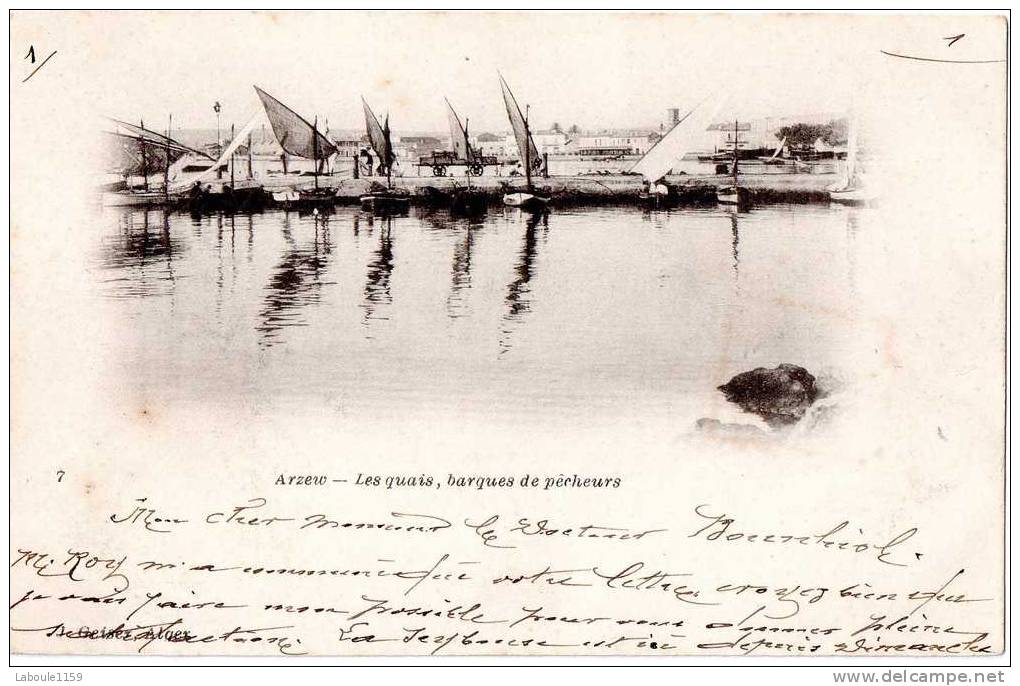 1/
1
7
Arzew — Les quais, barques de pêcheurs
Mon cher monsieur le Docteur
M. Roy m'a communiqué votre lettre croyez bien que
je vais faire mon possible pour vous donner pleine
satisfaction. La Seybouse est ici depuis Dimanche
J. Geiser, Alger
Laboule1159
www.delcampe.net